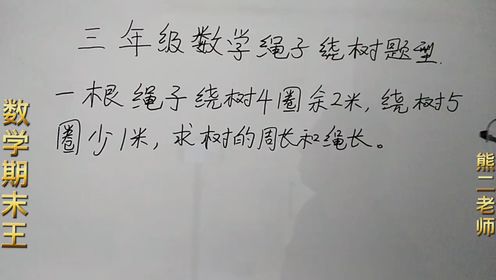 三年级数学绳子绕树题型.
一根绳子绕树4圈余2米,绕树5
圈少1米,求树的周长和绳长。
数学期末王
熊二老师